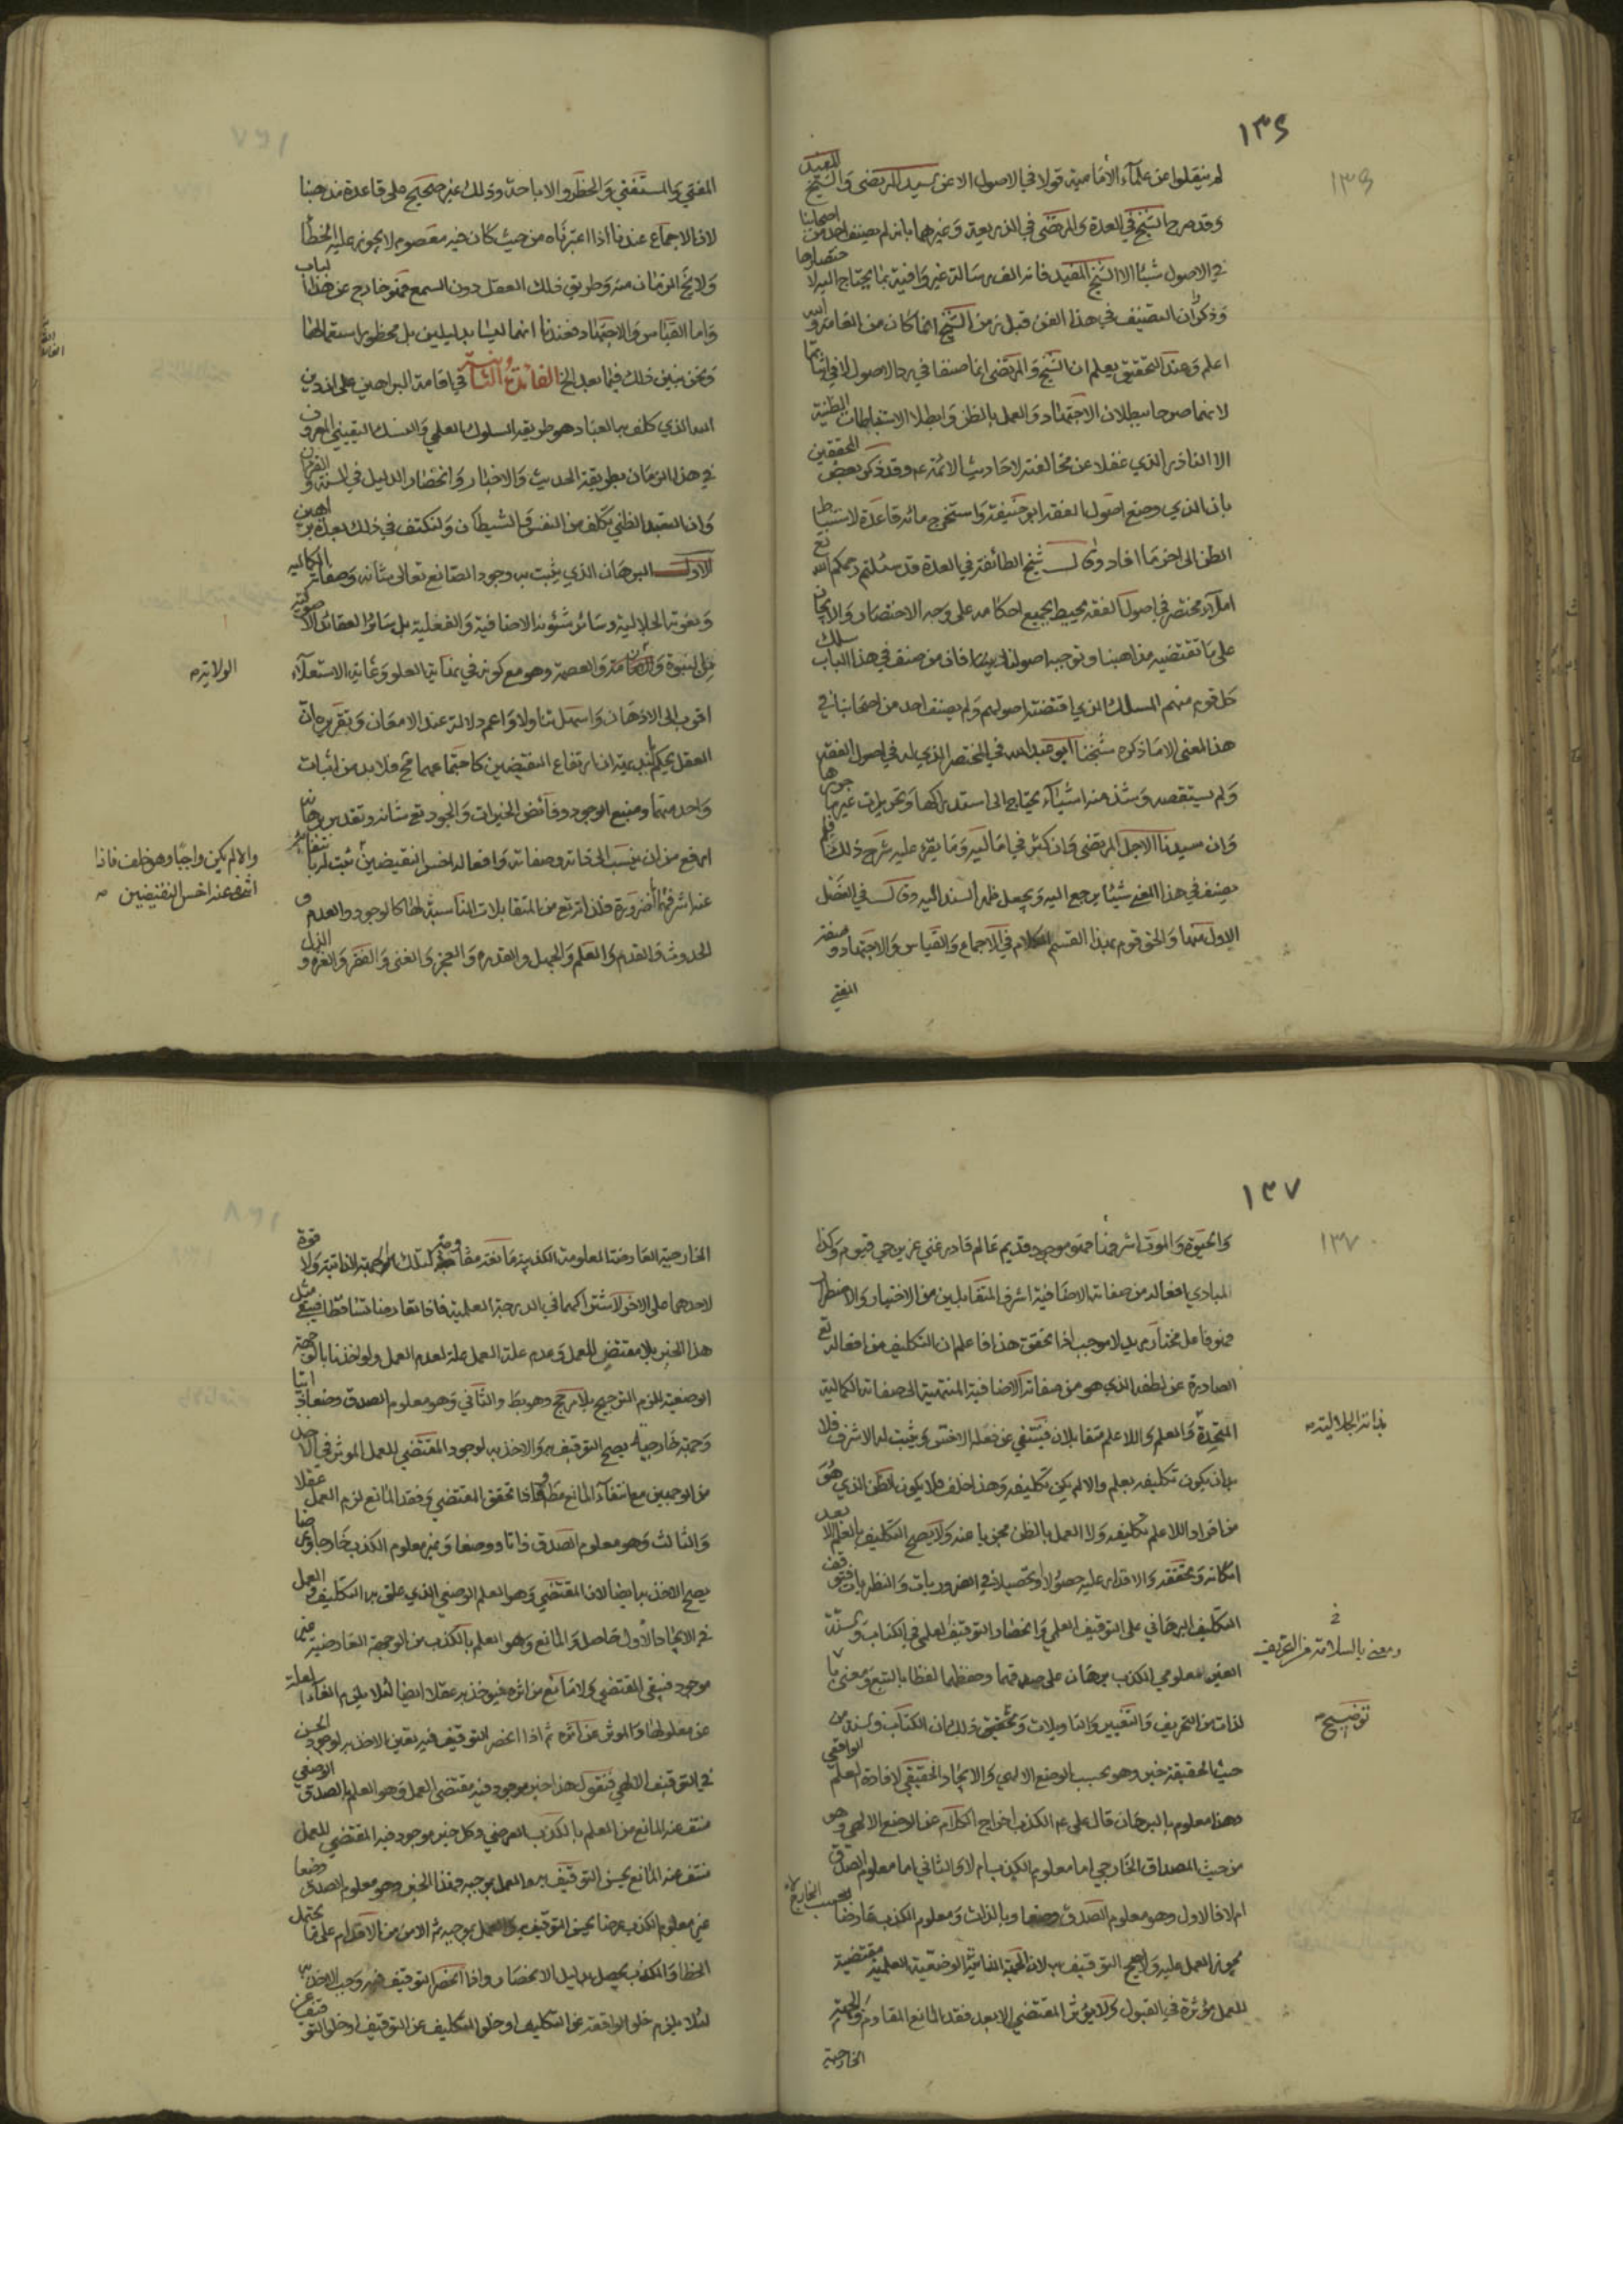 ١٣٦
لم ينقلوا عن علمآء الأمامية قولا في الاصول الا عن السيد المرتضى و الشيخ المفيد
وقد صرح الشيخ في العدة والمرتضى في الذريعة وغيرهما بانه لم يصنف احد من اصحابنا
في الاصول شيئا الا الشيخ المفيد فانه الف رسالة غير وافية بما يحتاج اليه لاختصارها
وذكر ان التصنيف في هذا الفن قبل زمن الشيخ انما كان من العامة والله
اعلم وعند التحقيق يعلم ان الشيخ والمرتضى انما صنفا في رد الاصول لا في اثباتها
لانهما صرحا ببطلان الاجتهاد والعمل بالظن وابطلا الاستنباطات الظنية
الا النادر الذي غفلا عن مخالفته لاحاديث الائمة ع وقد ذكر بعض المحققين
بان الذي وضع اصول الفقه ابو حنيفة واستخرج مائة قاعدة لاستنباط
الظن الى اخر ما افاد وقال شيخ الطائفة في العدة قد سئلتم رحمكم الله تع
املآء مختصر في اصول الفقه يحيط بجميع احكامه على وجه الاختصار والايجاز
على ما تقتضيه مذاهبنا وتوجبه اصولنا فان من صنف في هذا الباب سلك
كل قوم منهم المسلك الذي اقتضته اصولهم ولم يصنف احد من اصحابنا في
هذا المعنى الا ما ذكره شيخنا ابو عبد الله في المختصر الذي له في اصول الفقه
ولم يستقصه وشذ منه اشيآء يحتاج الى استدراكها وتحريرات غير ما حررها
وان سيدنا الاجل المرتضى وان كثر في اماليه وما يقرء عليه شرح ذلك فلم
يصنف في هذا المعنى شيئا يرجع اليه ويجعل ظهرا يستند اليه وقال في الفصل
الاول منها والحق قوم بهذا القسم الكلام في الاجماع والقياس والاجتهاد وصفة
المفتي
المفتي والمستفتي والحظر والاباحة وذلك غير صحيح على قاعدة مذهبنا
لان الاجماع عندنا اذا اعتبرناه من حيث كان فيه معصوم لا يجوز عليه الخطأ
ولا يخ الزمان منه وطريق ذلك العقل دون السمع فهو خارج عن هذا الباب
واما القياس والاجتهاد فعندنا انهما ليسا بدليلين بل محظور استعمالهما
ونحن نبين ذلك فيما بعد الخ الفائدة الثانية في اقامة البراهين على ان دين
الله الذي كلف به العباد هو طريقة السلوك العلمي والنسك اليقيني المعروف
في هذا الزمان بطريقة الحديث والاخبار وانحصار الدليل في السنة والقران
وان التعبد الظني تكلف من النفس والشيطان ولنكتف في ذلك بعدة براهين
الاول البرهان الذي يثبت به وجود الصانع تعالى شانه وصفاته الكمالية
ونعوته الجلالية وسائر شئونه الاضافية والفعلية بل سائر العقائد الاصولية
مثل النبوة والامامة والعصمة وهو مع كونه في نهاية العلو وغاية الاستعلآء
اقرب الى الاذهان واسهل تناولا واعم دلالة عند الامعان وتقريره ان
العقل يحكم بديهة ان ارتفاع النقيضين كاجتماعهما مح فلا بد من اثبات
واحد منهما ومنبع الوجود وفائض الخيرات والجود تع شانه وتقدير برهانه
ارفع من ان ينسب الى ذاته وصفاته وافعاله اخس النقيضين ثبت له
عنه اشرفهما ضرورة فلذا ترتع من المتقابلات التناسبية لها كالوجود والعدم و
الحدوث والقدم والعلم والجهل والقدرة والعجز والغنى والفقر والعزة والذل
الولاية صه
والا لم يكن واجبا وهو خلف فاذا
انتفى عنه اخس النقيضين صه
١٣٧
والحيوة والموت اشرفها فهو موجود قديم عالم قادر غني عزيز حي قيوم وكذا
المبادي افعاله من صفاته الاضافية اشرف المتقابلين من الاختيار والاضطرار
فهو فاعل مختار مريد لا موجب اذا تحقق هذا فاعلم ان التكليف من افعاله تع
الصادرة عن لطفه الذي هو من صفاته الاضافية المنتهية الى صفاته الكمالية
المتحدة والعلم واللاعلم متقابلان فينتفي عن فعله الاخس ويثبت له الاشرف فلا
بد ان يكون تكليفه بعلم والا لم يكن تكليفه وهذا خلف فلا يكون الظن الذي هو
من افراد اللاعلم تكليفه ولا العمل بالظن مجزيا عنه ولا يصح التكليف بالعلم الا بعد
امكانه وتحققه والاقدار عليه حصولا وتحصيلا في الضروريات والنظريات فتوقف
التكليف البرهاني على التوقيف العلمي وانحصار التوقيف العلمي في الكتاب والسنة
الغير معلومي الكذب برهان على صدقهما وحفظهما لفظا بالتبع ومعنى با
لذات من التحريف والتغيير والتاويلات وتحقيق ذلك ان الكتاب والسنة من
حيث الحقيقة خبر وهو بحسب الوضع الالهي والايجاد الحقيقي لافادة العلم الواقعي
وهذا معلوم بالبرهان قال علي ع الكذب اخراج الكلام عن الوضع الالهي وهو
من حيث المصداق الخارجي اما معلوم الكذب ام لا والثاني اما معلوم الصدق
ام لا فالاول وهو معلوم الصدق وضعا وبالذات ومعلوم الكذب عارضا بحسب الخارج
يجوز العمل عليه والصحيح التوقيف به لان الجهة الذاتية الوضعية العلمية مقتضية
للعمل مؤثرة في القبول ولا يؤثر المقتضي الا بعد فقد المانع المقاوم والجهة
الخارجية
بذاته الجلالية صه
ومعنى بالسلامة من التحريف
توضيح صه
الخارجية العارضة المعلومة الكذبية مانعة مقاومة لتلك الجهة الذاتية ولا قوة
لاحدهما على الاخر لاشتراكهما في الدرجة العلمية فاذا تعارضا تساقطا فيبقى مثل
هذا الخبر بلا مقتض للعمل وعدم علة العمل علة لعدم العمل ولو اخذنا بالجهة
الوضعية للزم الترجيح بلا مرجح وهو بط والثاني وهو معلوم الصدق وضعا ذاتيا
وجهة خارجية يصح التوقيف به والاخذ به لوجود المقتضي للعمل الموثر في الاصل
من الوجهين مع انتفآء المانع مطلقا فاذا تحقق المقتضي وفقد المانع لزم العمل عقلا
والثالث وهو معلوم الصدق ذاتا ووضعا وغير معلوم الكذب خارجا وعرضا
يصح الاخذ به ايضا لان المقتضي وهو العلم الوضعي الذي علق به التكليف والعمل
في الايجاد الاول حاصل والمانع وهو العلم بالكذب من الوجهة العارضية غير
موجود فيبقى المقتضي ولا مانع من اثره فيؤخذ به عقلا ايضا لئلا يلزم انفكاك العلة
عن معلولها والموثر عن اثره ثم اذا انحصر التوقيف فيه تعين الاخذ به لوجود الحسن
في التوقيف الالهي فنقول هذا خبر موجود فيه مقتضى العمل وهو العلم بالصدق الوضعي
منتف عنه المانع من العلم بالكذب العرضي وكل خبر موجود فيه المقتضي للعمل
منتف عنه المانع يحسن التوقيف به والعمل بموجبه فهذا الخبر وهو معلوم الصدق وضعا
غير معلوم الكذب عرضا يحسن التوقيف به والعمل بموجبه ثم الامن من الاقدام على ما يحتمل
الخطا والكذب يحصل بدليل الانحصار واذا انحصر التوقيف فيه وجب الاخذ به
لئلا يلزم خلو الواقعة عن التكليف او خلو التكليف عن التوقيف او خلو التوقيف عن